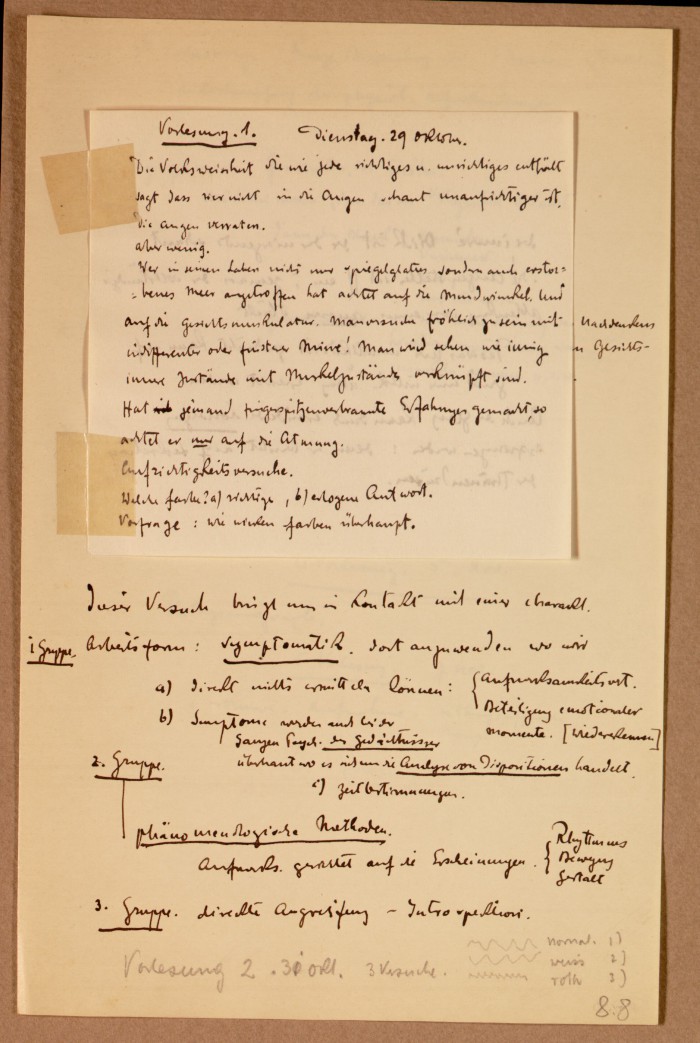 Vorlesung. 1. Dienstag. 29 Oktober.
Die Volksweisheit die wie jede richtiges u. unrichtiges enthält
sagt dass wer nicht in die Augen schaut unaufrichtiger ist.
Die Augen verraten.
aber wenig.
Wer in seinem Leben nicht nur spiegelglattes sondern auch erstor=
=benes Meer angetroffen hat achtet auf die Mundwinkel. Und
auf die Gesichtsmuskulatur. Man versuche fröhlich zu sein mit
indifferenter oder finsterer Miene! Man wird sehen wie innig
innere Zustände mit Muskelzuständen verknüpft sind.
Nachdenkens
n Gesichts-
Hat jemand fingerspitzenverbrannte Erfahrungen gemacht, so
achtet er nur auf die Atmung.
Aufrichtigkeitsversuche.
Welche farbe? a) richtige, b) erlogene Antwort.
Vorfrage: wie wirken farben überhaupt.
Dieser Versuch bringt uns in Kontakt mit einer charakt.
1 Gruppe. Arbeitsform: Symptomatik. dort anzuwenden wo wir
a) direkt nichts ermitteln können: { Aufmerksamkeitsart.
Beteiligung emotionaler
momente. [wiedererkennen]
b) Symptome werden auch bei der
ganzen Psych. des Gedächtnisses
2. Gruppe. überhaupt wo es sich um die Analyse von Dispositionen handelt.
c) Zeitbestimmungen.
phänomenologische Methoden.
Aufmerks. gerichtet auf die Erscheinungen. { Rhythmus
Bewegung
Gestalt
3. Gruppe. direkte Angreifung – Introspektion.
Vorlesung 2. 30 okt. 3 Versuche.
normal. 1)
weiss 2)
roth 3)
8.8